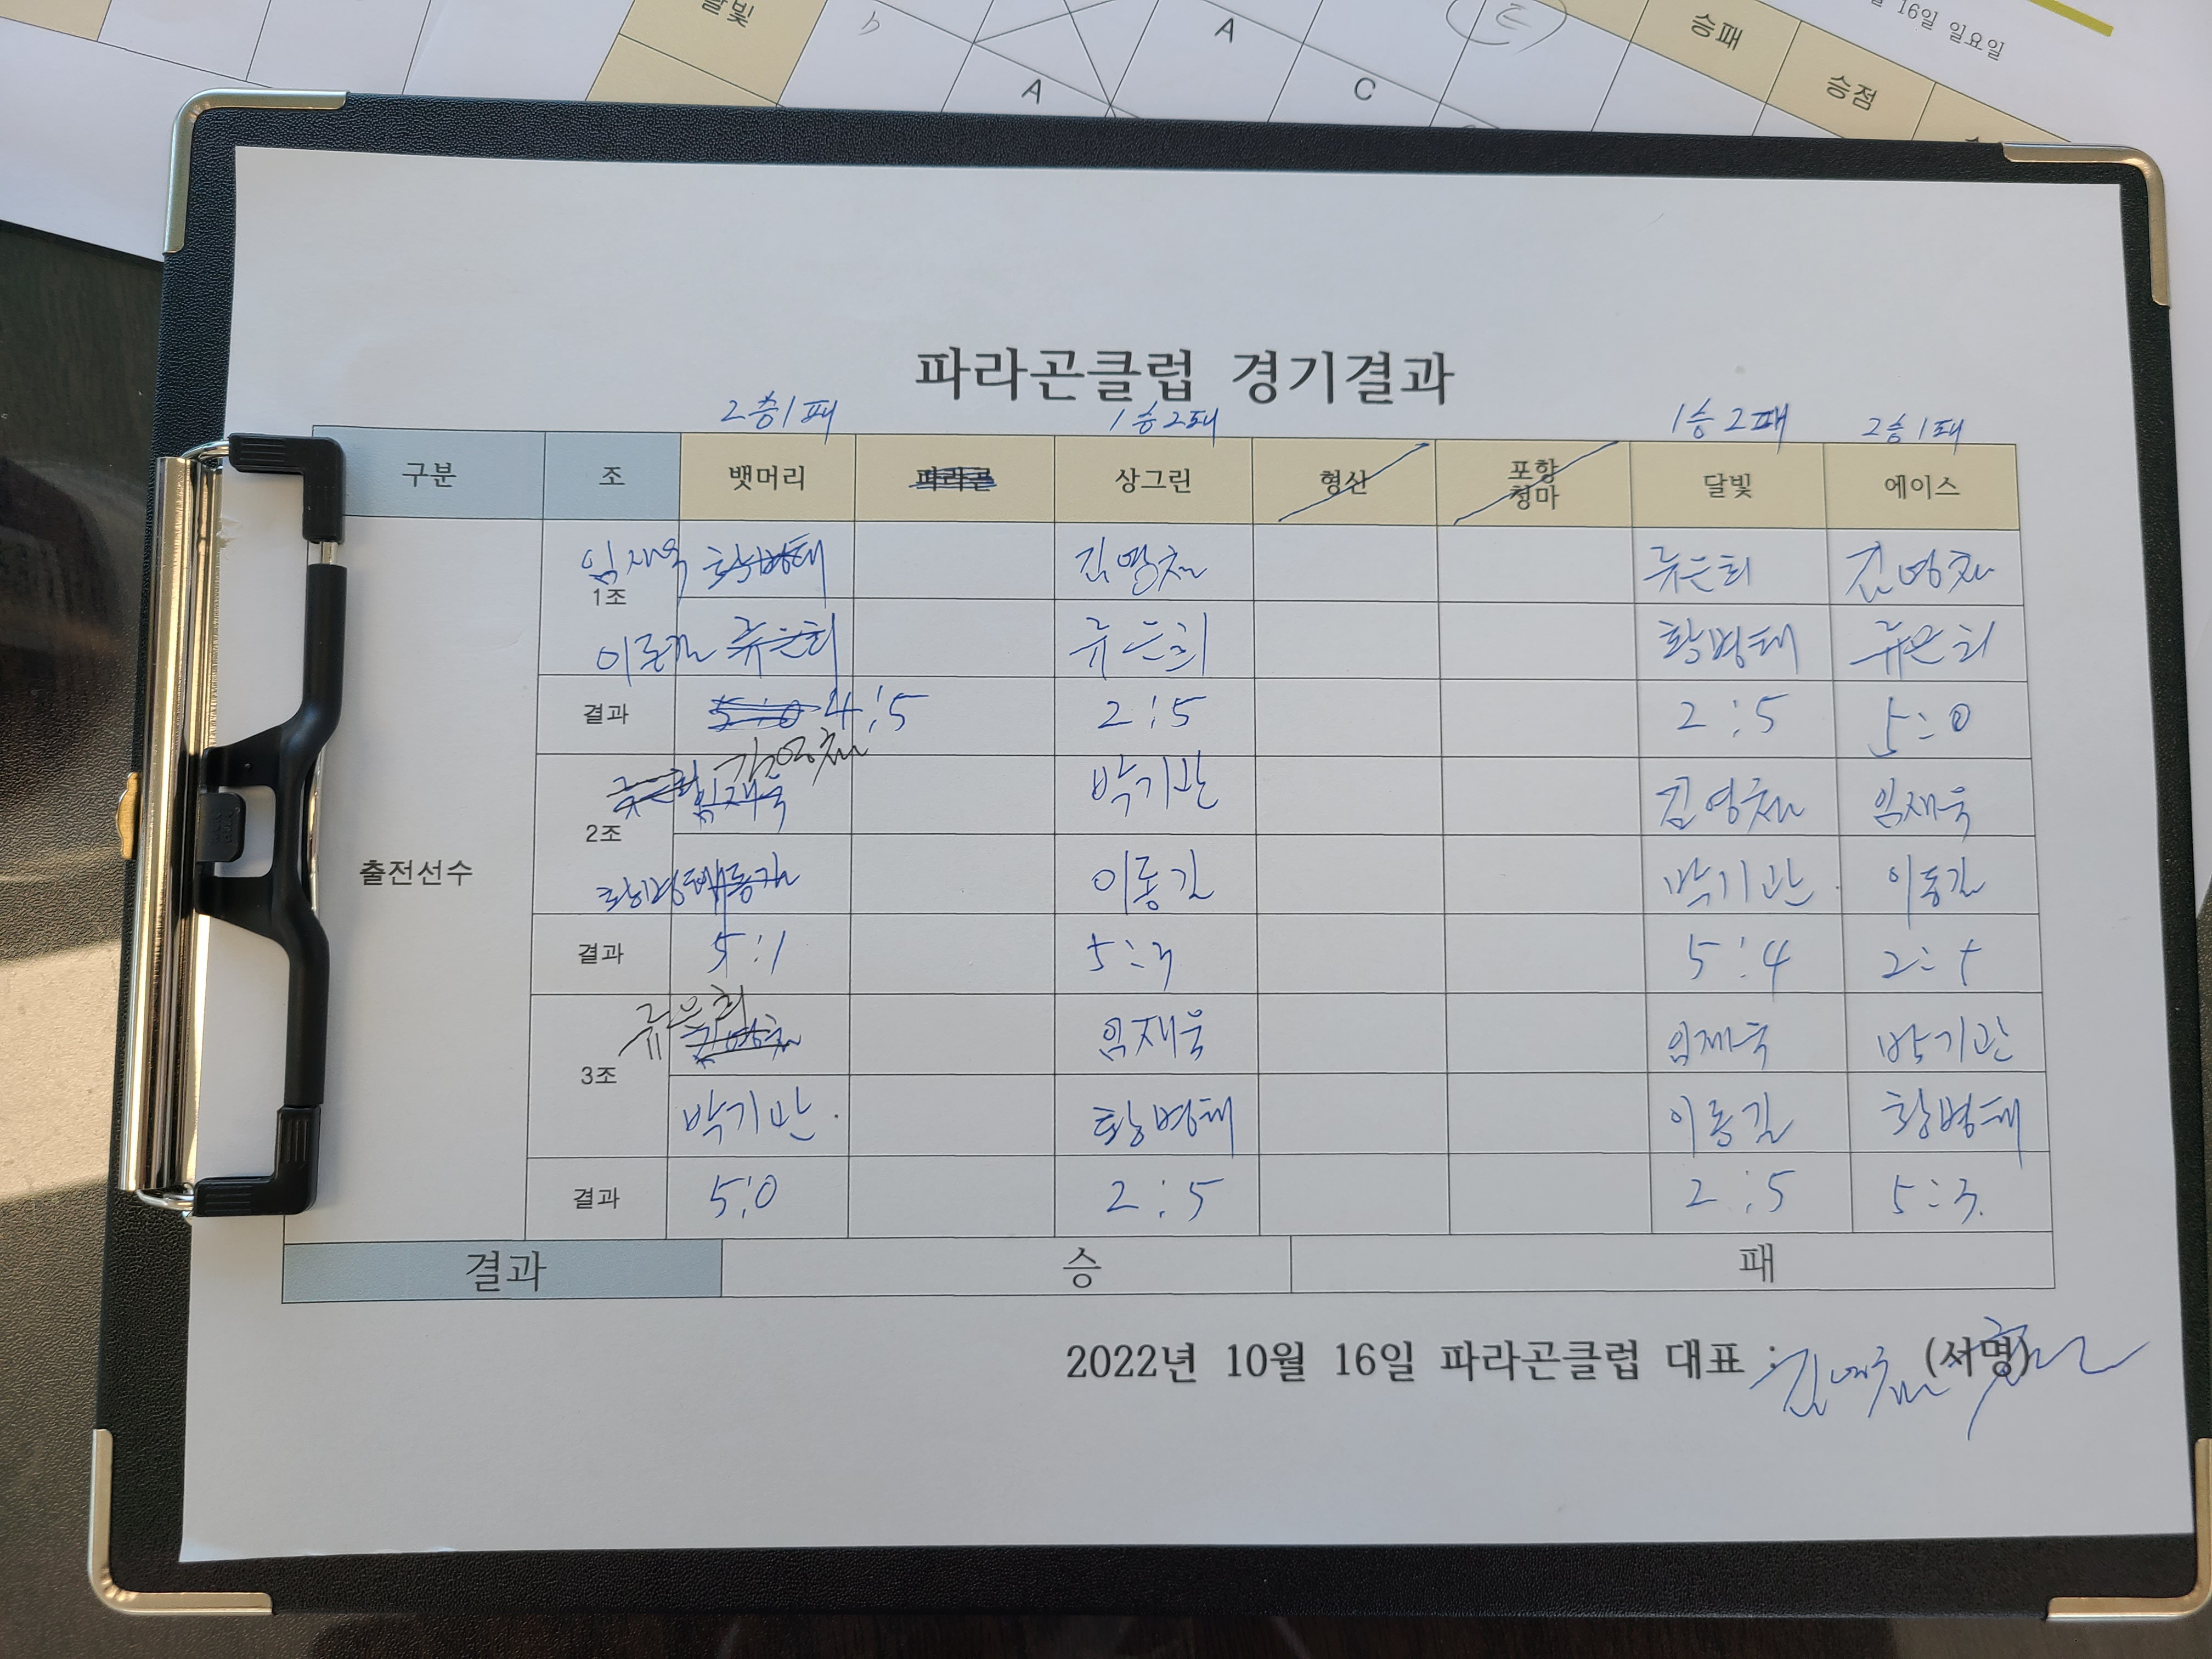 달빛
A
A
C
승패
승점
16일 일요일
파라곤클럽 경기결과
2승1패 1승2패 1승2패 2승1패
구분 조 뱃머리 파라곤 상그린 형산 포항청마 달빛 에이스
임재욱 황병태 김영철 류은희 김영철
1조
이동길 류은희 류은희 황병태 류은희
결과 5:0 4:5 2:5 2:5 5:0
김영철
류은희 임재욱 박기관 김영철 임재욱
2조
황병태 이동길 이동길 박기관 이동길
출전선수
결과 5:1 5:3 5:4 2:5
류은희
김영철 임재욱 임재욱 박기관
3조
박기관 황병태 이동길 황병태
결과 5:0 2:5 2:5 5:3
결과 승 패
2022년 10월 16일 파라곤클럽 대표 : (서명)